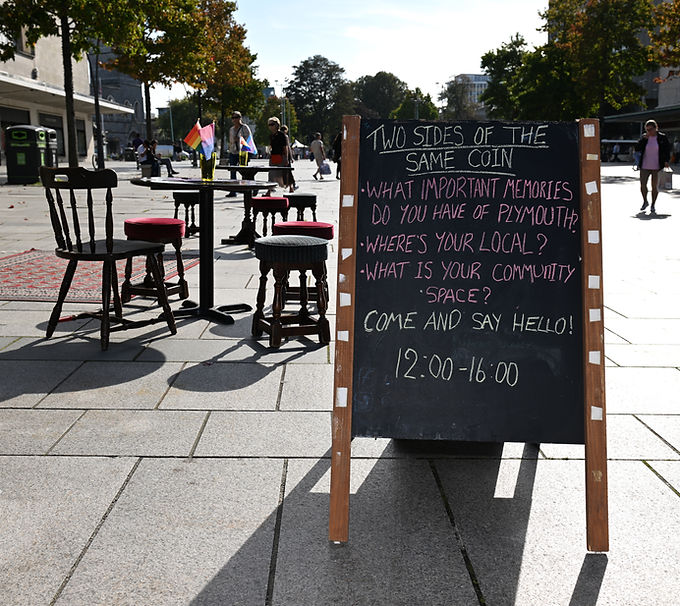 TWO SIDES OF THE
SAME COIN
·WHAT IMPORTANT MEMORIES
DO YOU HAVE OF PLYMOUTH?
·WHERE'S YOUR LOCAL?
·WHAT IS YOUR COMMUNITY
·SPACE?
COME AND SAY HELLO!
12:00-16:00